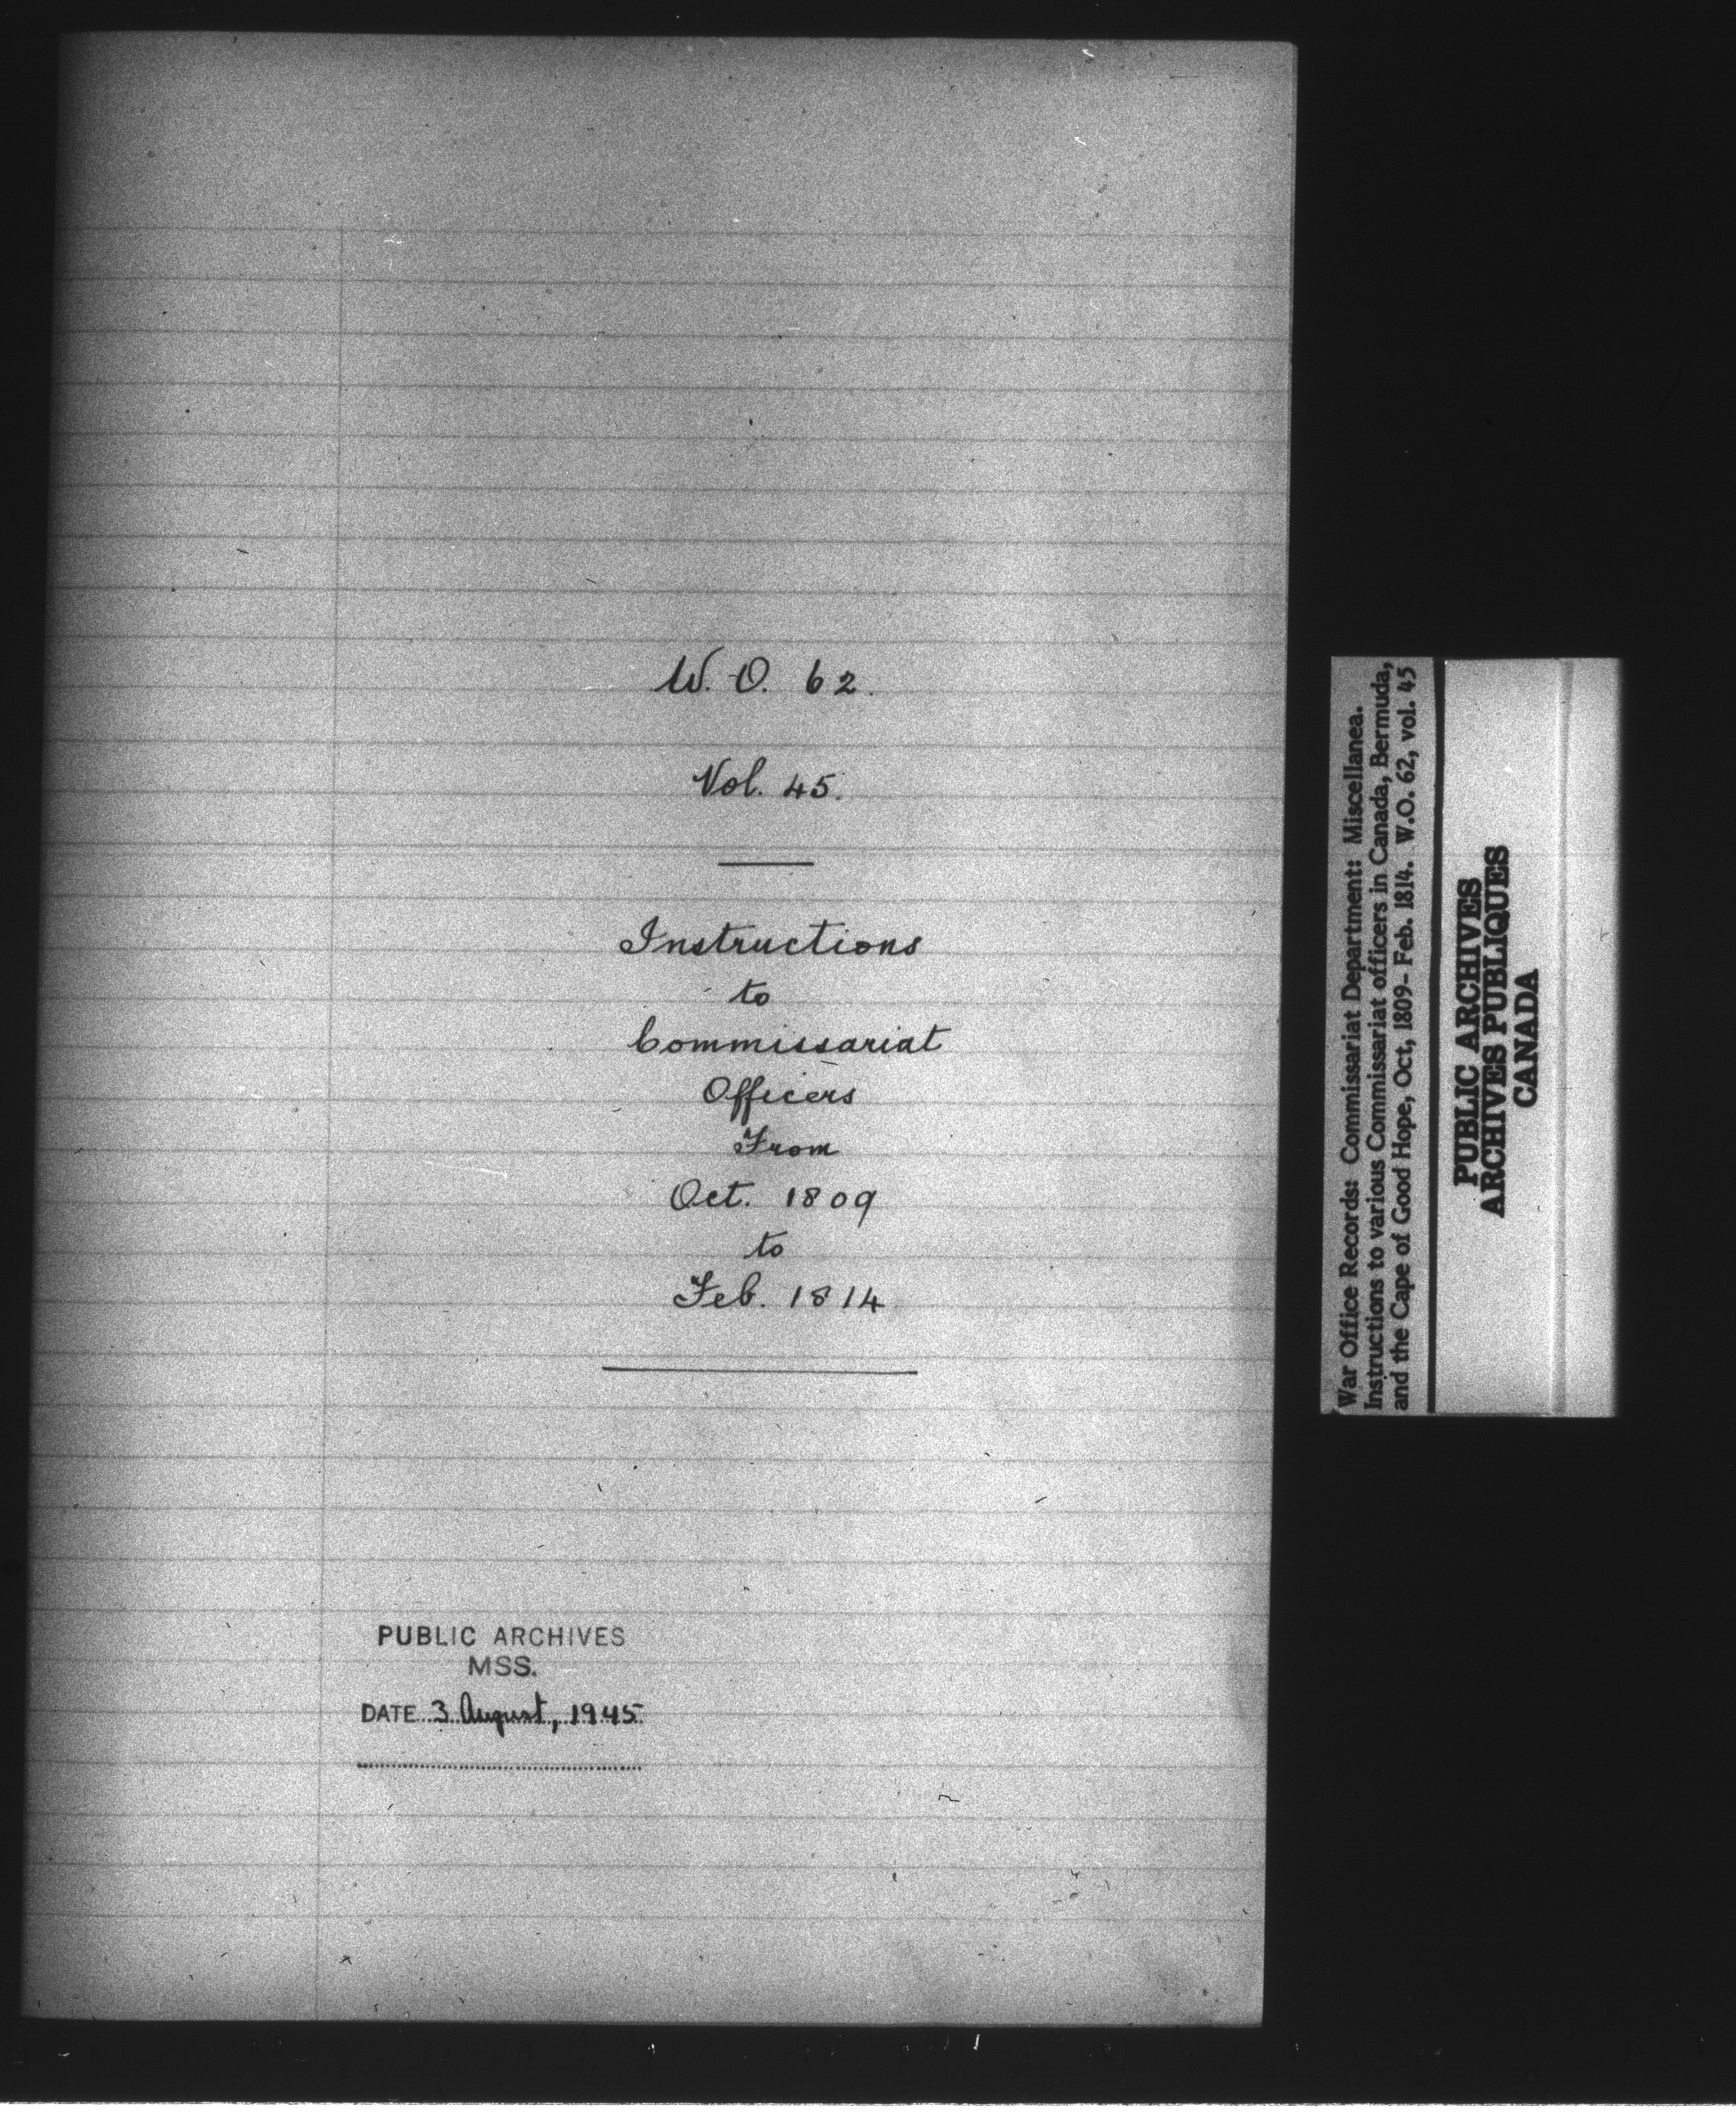 W. O. 62.
Vol. 45.
Instructions
to
Commissariat
Officers
From
Oct. 1809
to
Feb. 1814
PUBLIC ARCHIVES
MSS.
DATE 3 August, 1945
War Office Records: Commissariat Department: Miscellanea.
Instructions to various Commissariat officers in Canada, Bermuda,
and the Cape of Good Hope, Oct, 1809- Feb. 1814. W.O. 62, vol. 45
PUBLIC ARCHIVES
ARCHIVES PUBLIQUES
CANADA